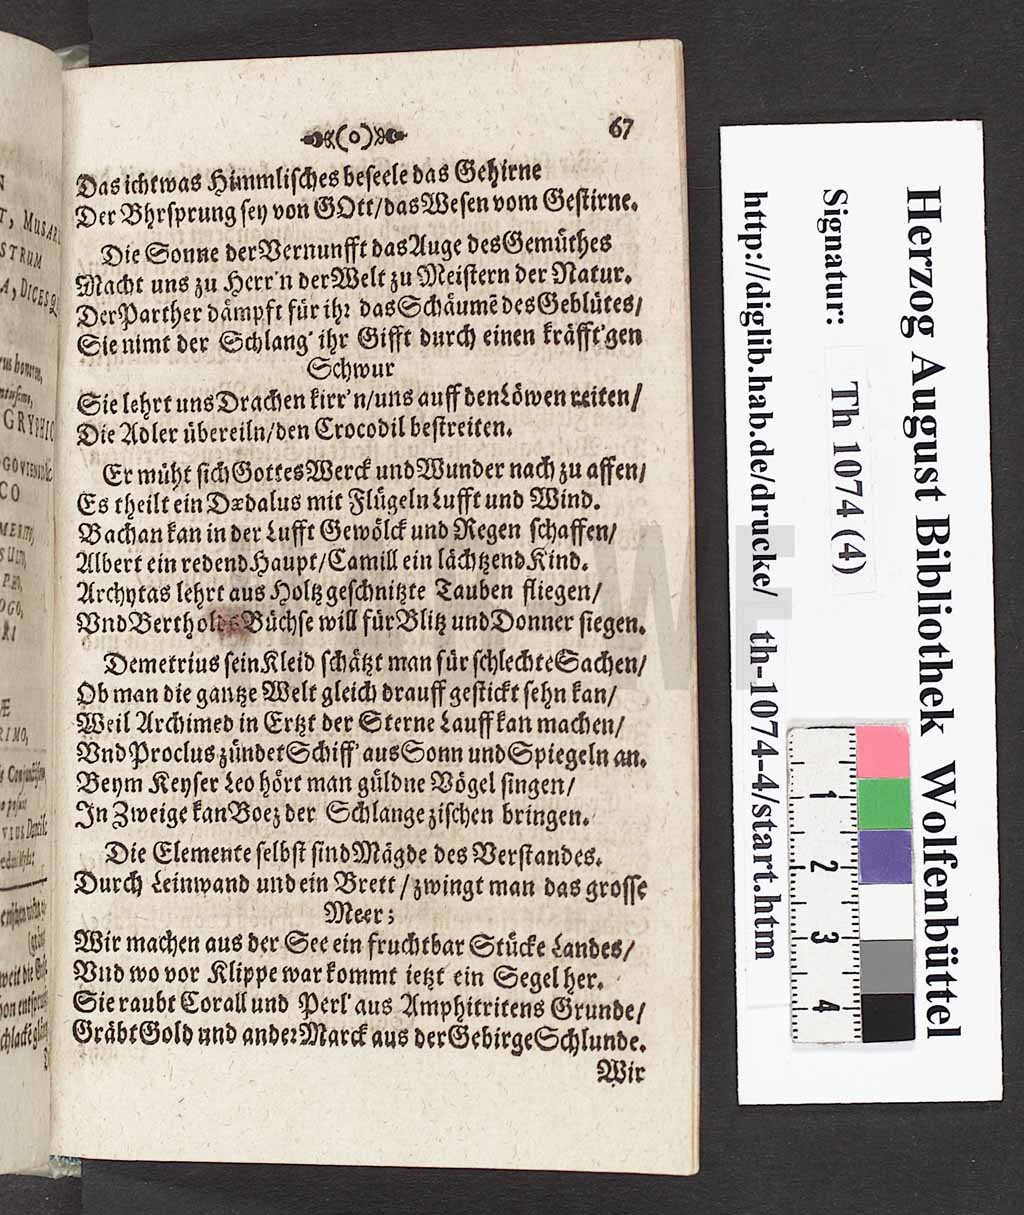 (o) 67
Das ichtwas Himmlisches beseele das Gehirne
Der Vhrsprung sey von GOtt/das Wesen vom Gestirne.
Die Sonne der Vernunfft das Auge des Gemüthes
Macht uns zu Herr'n der Welt zu Meistern der Natur.
Der Parther dämpft für ihr das Schäumē des Geblütes/
Sie nimt der Schlang' ihr Gifft durch einen kräfft'gen
Schwur
Sie lehrt uns Drachen kirr'n/uns auff den Löwen reiten/
Die Adler übereiln/den Crocodil bestreiten.
Er müht sich Gottes Werck und Wunder nach zu affen/
Es theilt ein Dædalus mit Flügeln Lufft und Wind.
Bachan kan in der Lufft Gewölck und Regen schaffen/
Albert ein redend Haupt/Camill ein lächtzend Kind.
Archytas lehrt aus Holtz geschnitzte Tauben fliegen/
Vnd Bertholds Büchse will für Blitz und Donner siegen.
Demetrius sein Kleid schätzt man für schlechte Sachen/
Ob man die gantze Welt gleich drauff gestickt sehn kan/
Weil Archimed in Ertzt der Sterne Lauff kan machen/
Vnd Proclus zündet Schiff' aus Sonn und Spiegeln an.
Beym Keyser Leo hört man güldne Vögel singen/
In Zweige kan Boez der Schlange zischen bringen.
Die Elemente selbst sind Mägde des Verstandes.
Durch Leinwand und ein Brett/zwingt man das grosse
Meer;
Wir machen aus der See ein fruchtbar Stücke Landes/
Vnd wo vor Klippe war kommt ietzt ein Segel her.
Sie raubt Corall und Perl' aus Amphitritens Grunde/
Gräbt Gold und ander Marck aus der Gebirge Schlunde.
Wir
Herzog August Bibliothek Wolfenbüttel
Signatur: Th 1074 (4)
http://diglib.hab.de/drucke/ th-1074-4/start.htm
1
2
3
4